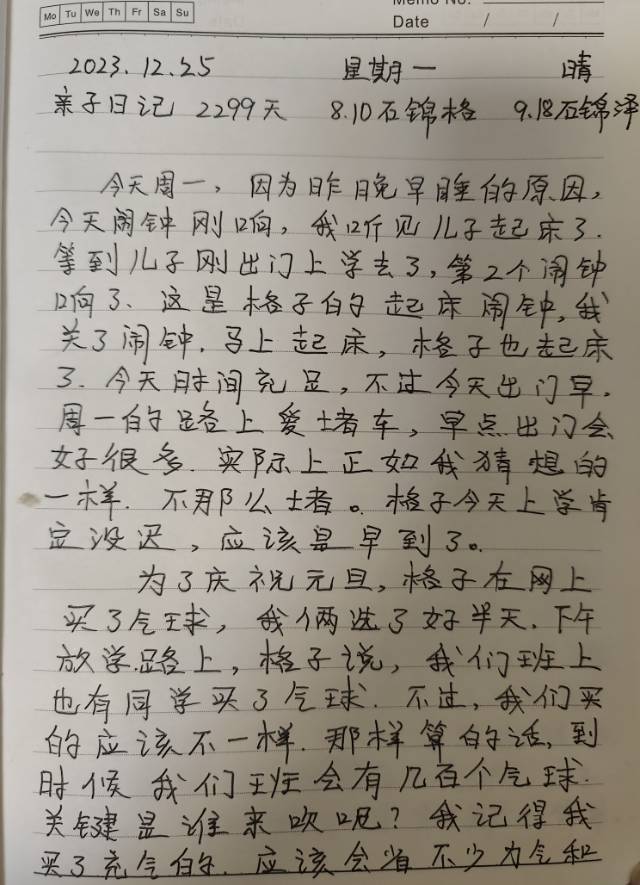 Mo Tu We Th Fr Sa Su
Memo No.
Date / /
2023.12.25 星期一 晴
亲子日记 2299天 8.10石锦格 9.18石锦泽
今天周一，因为昨晚早睡的原因，
今天闹钟刚响，我听见儿子起床了.
等到儿子刚出门上学去了，第2个闹钟
响了、这是格子的起床闹钟，我
关了闹钟.马上起床，格子也起床
了.今天时间充足，不过今天出门早.
周一的路上爱堵车，早点出门会
好很多.实际上正如我猜想的
一样.不那么堵。格子今天上学肯
定没迟，应该是早到了。
为了庆祝元旦，格子在网上
买了气球，我俩选了好半天.下午
放学路上，格子说，我们班上
也有同学买了气球.不过，我们买
的应该不一样.那样算的话，到
时候我们班会有几百个气球.
关键是谁来吹呢？我记得我
买了充气的.应该会省不少力气和